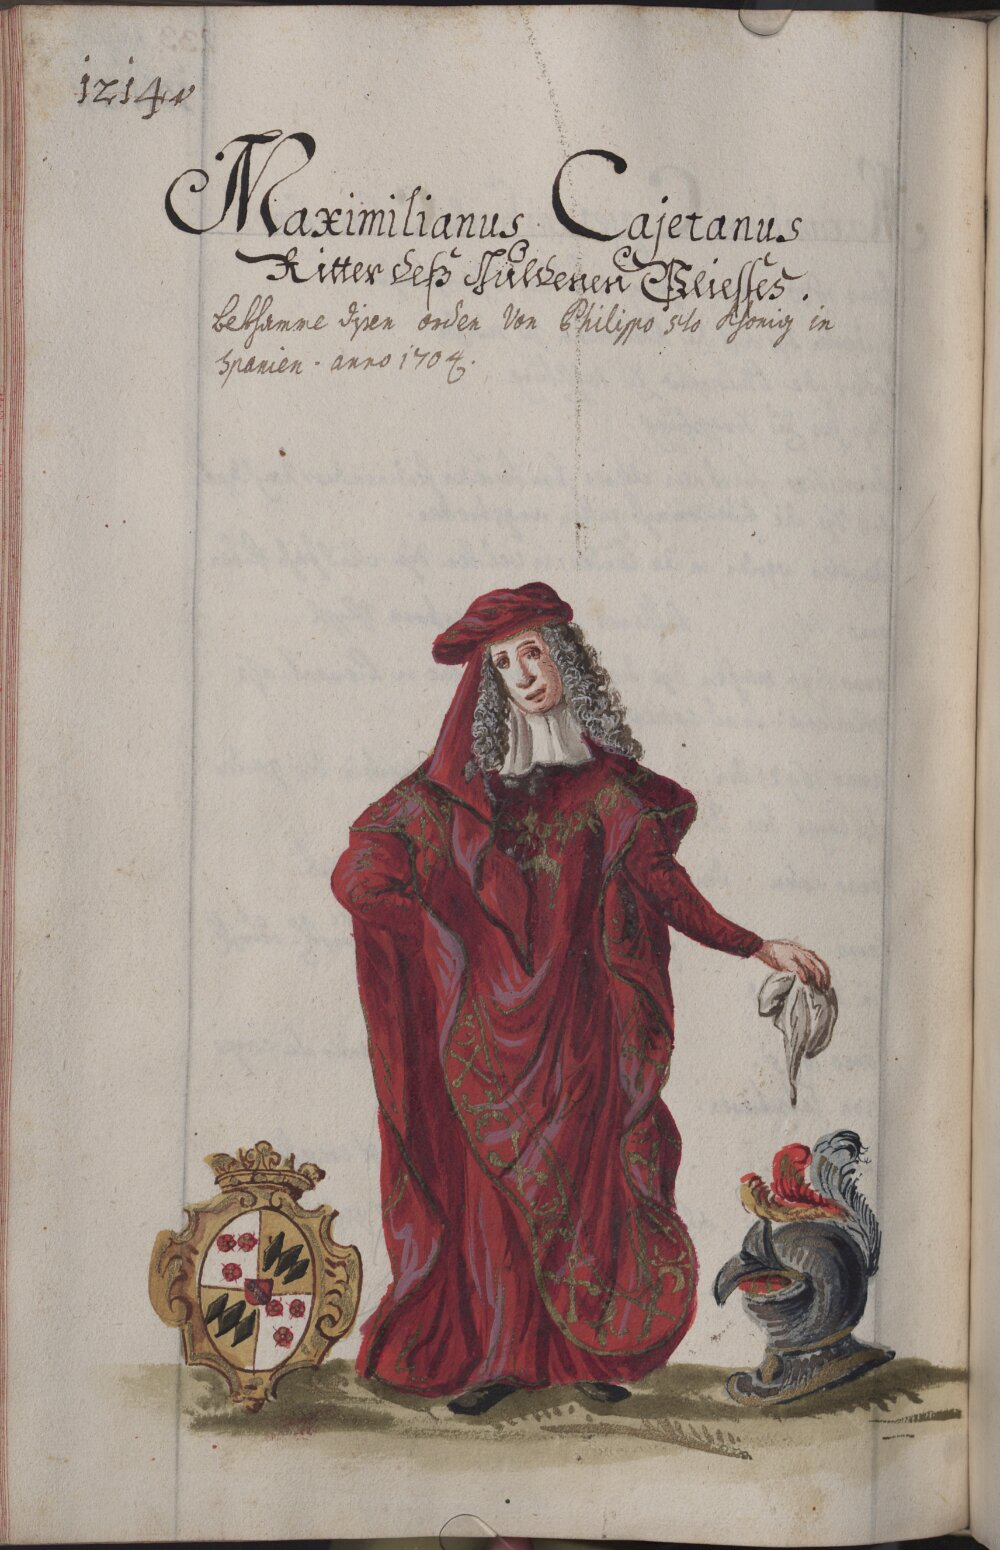 1214v
Maximilianus Cajetanus
Ritter deß Güldenen Vliesses.
bekhamme disen orden von Philippo 5to König in
Spanien. anno 1704.